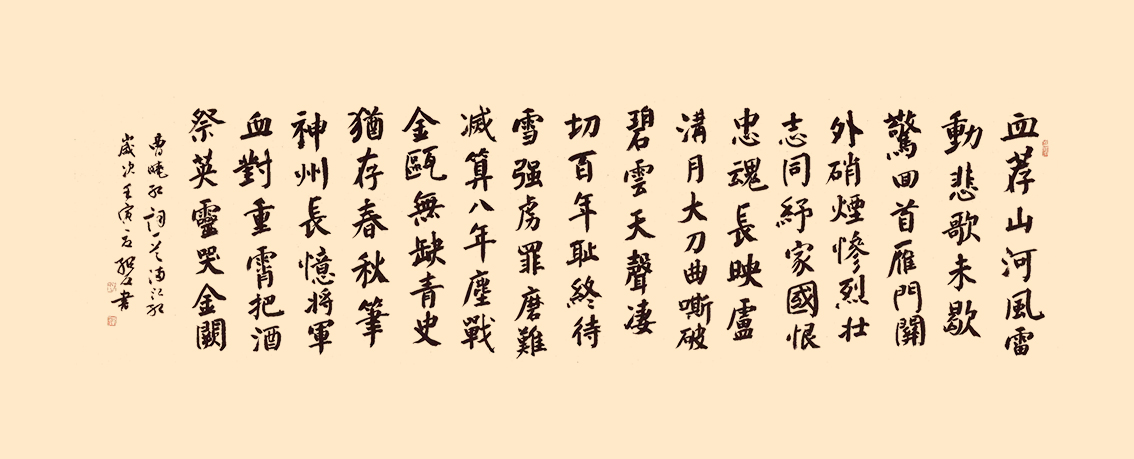 血荐山河風雷
動悲歌未歇
驚回首雁門關
外硝煙慘烈壯
志同紓家國恨
忠魂長映盧
溝月大刀曲嘶破
碧雲天聲淒
切百年恥終待
雪强虜罪磨難
滅算八年塵戰
金甌無缺青史
猶存春秋筆
神州長憶將軍
血對重霄把酒
祭英靈哭金闕
曹曉 詞一首滿江紅
歲次壬寅 書